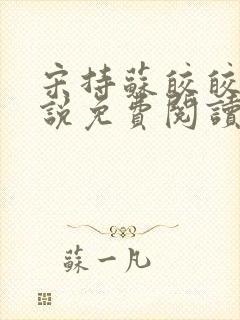 宋持蘇皎皎
說免費閱讀
蘇一凡